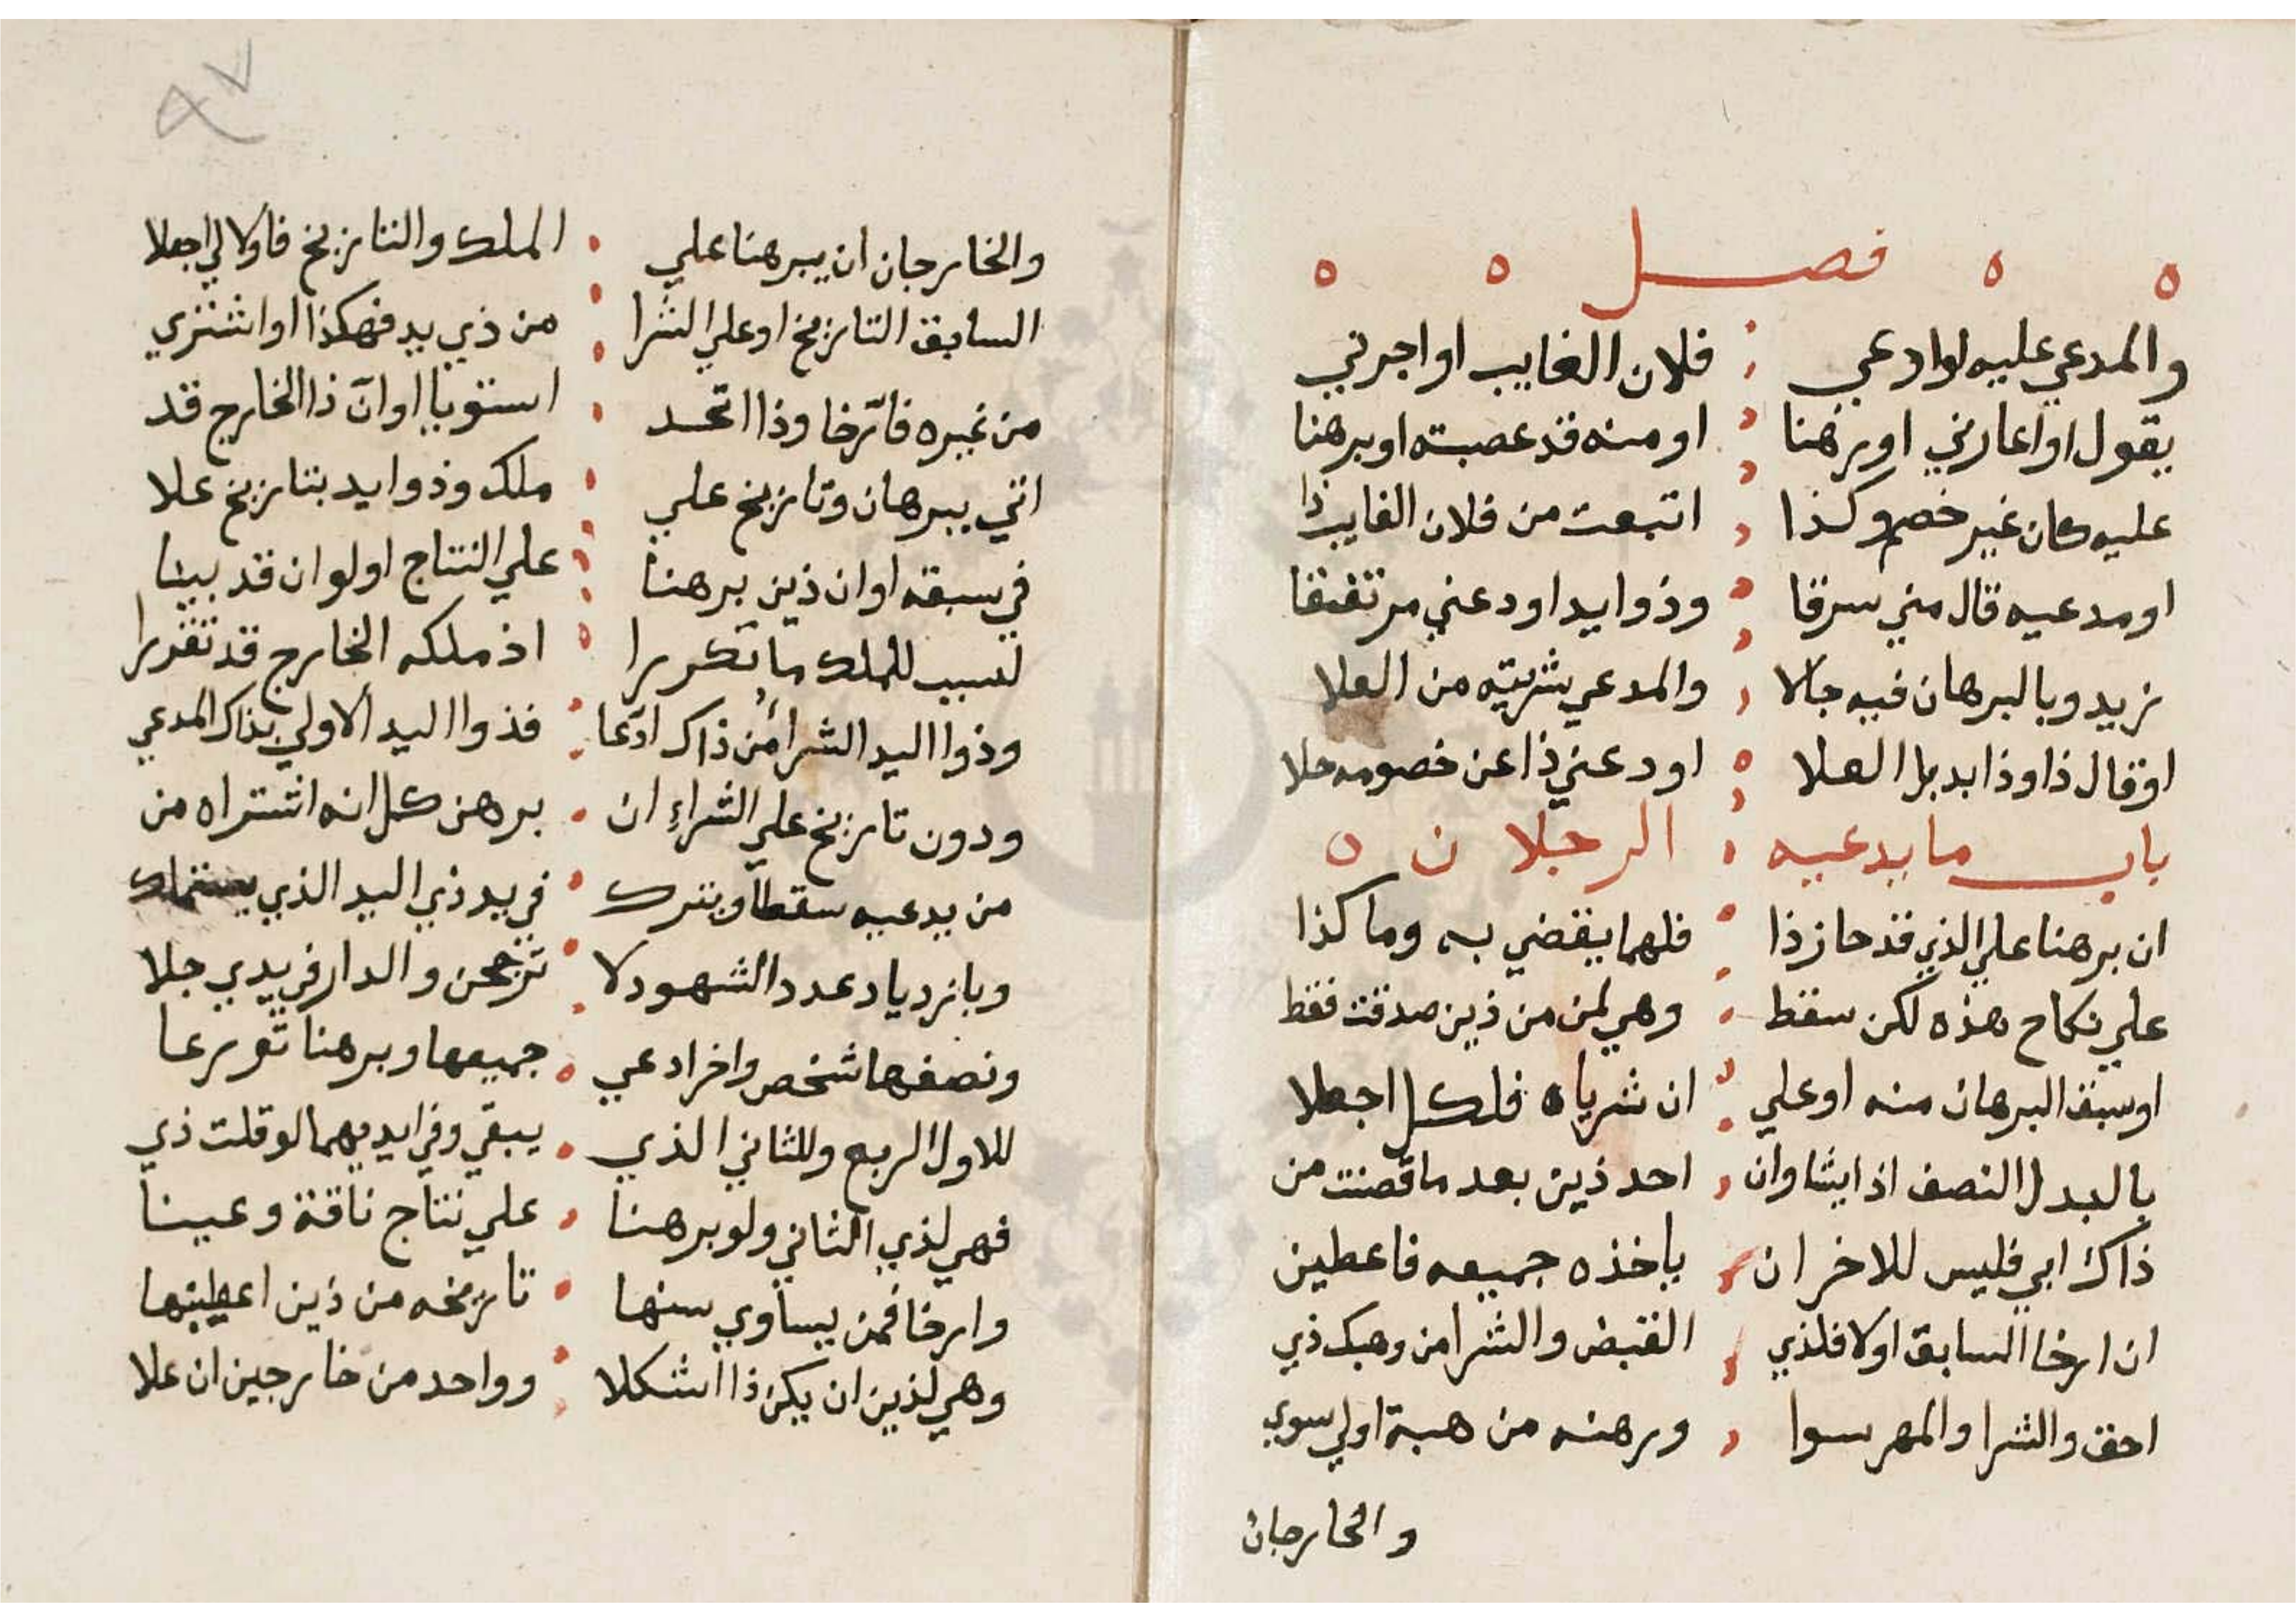 فصل
والمدعي عليه لوادعي فلان الغايب او اجرني
يقول او اعارني او رهنا او منه قد عصبته او برهنا
عليه كان غير خصم وكذا اتبعت من فلان الغايب ذا
او مدعيه قال مني سرقا وذوايد اودعني مرتفقا
زيد وبالبرهان فيه جالا والمدعي شريته من العلا
او قال ذا وذا بدبل العلا اودعني ذا عن خصومه حلا
باب ما يدعيه الرجلان
ان برهنا علي الذي قد حاز ذا فلهما يقضي به وما كذا
علي نكاح هذه لكن سقط وهي لمن من ذين صدقت فقط
او سبق البرهان منه او علي ان شرياه فلكل اجعلا
بالبدل النصف اذا يشا وان احد ذين بعد ما قضت من
ذاك ابي فليس للاخر ان ياخذه جميعه فاعطين
ان ارخا السابق اولا فلذي القبض والشرا من وهبك ذي
احق والشرا والمهر سوا ورهنه من هبة اولي سوي
والخارجان
٩٧
والخارجان ان يبرهنا علي الملك والتاريخ فاولالي اجعلا
السابق التاريخ او علي الشرا من ذي يد فهكذا او اشتري
من غيره فارخا وذا اتحد استويا او ان ذا الخارج قد
اتي ببرهان وتاريخ علي ملك وذوايد بتاريخ علا
في سبقه او ان ذين برهنا علي النتاج او لو ان قد بينا
لسبب للملك ما تكررا اذ ملكه الخارج قد تقررا
وذوا اليد الشرا من ذاك ادعا فذوا اليد الاولي بذاك المدعي
ودون تاريخ علي الشراء ان برهن كل انه اشتراه من
من يدعيه سقطا ويترك في يد ذي اليد الذي يستملك
وبازدياد عدد الشهود لا ترجحن والدار في يدي جلا
ونصفها شخص واخر ادعي جميعها وبرهنا تورعا
للاول الربع وللثاني الذي يبقي وفي ايديهما لو قلت ذي
فهي لذي الثاني ولو برهنا علي نتاج ناقة وعينا
وارخا فمن يساوي سنها تاريخه من ذين اعطينها
وهي لذين ان يكن ذا اشكلا وواحد من خارجين ان علا